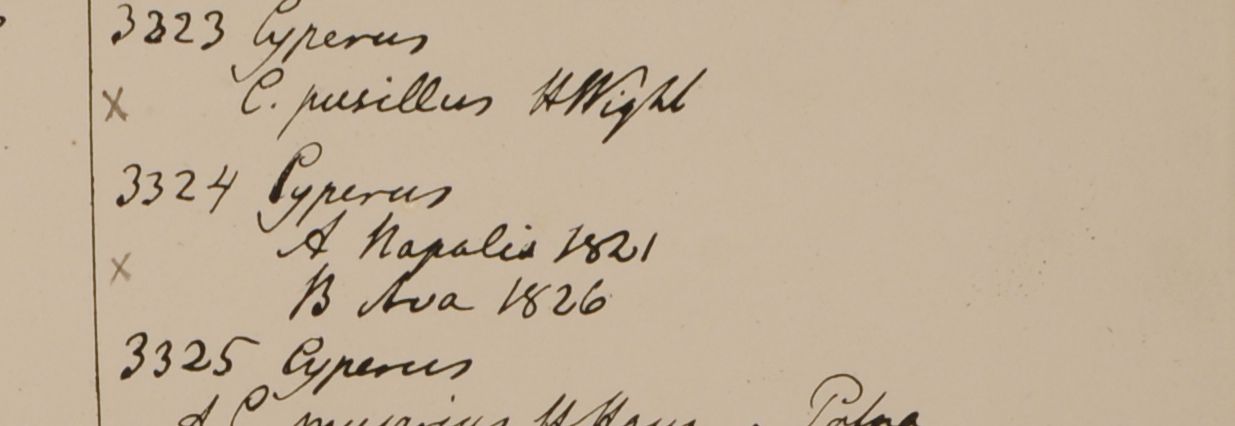 3323 Cyperus
x C. pusillus H Wight
3324 Cyperus
A Napalia 1821
x
B Ava 1826
3325 Cyperus
A C.